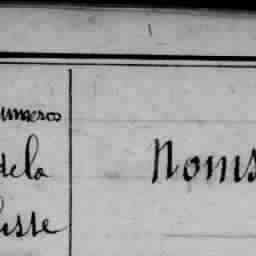 umeros
de la
Noms